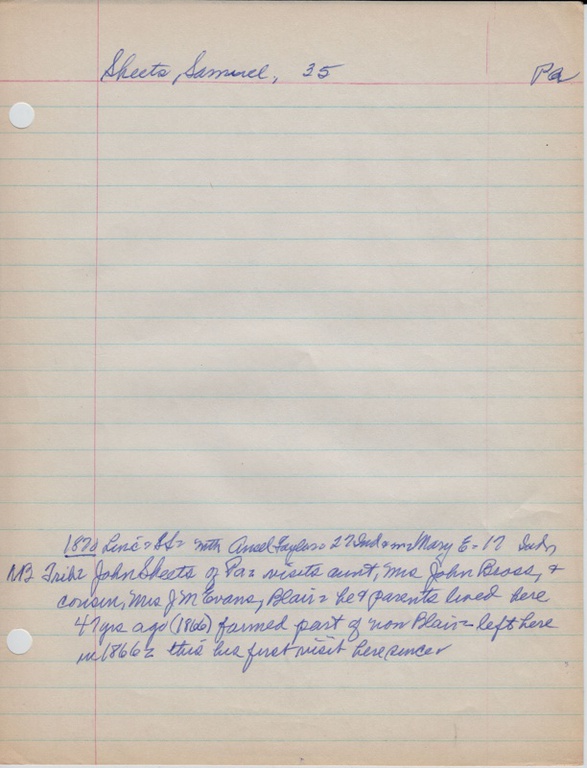 Sheets, Samuel, 35 Pa
1870 Linc = = with Ansel Taylor = 27 Ind = m = Mary E = 17 Ind,
Trib = John Sheets of Pa = visits aunt, Mrs John Bross, +
cousin, Mrs J M Evans, Blair = he + parents lived here
47 yrs ago (1866) farmed part of now Blair = left here
in 1866 = this his first visit here since